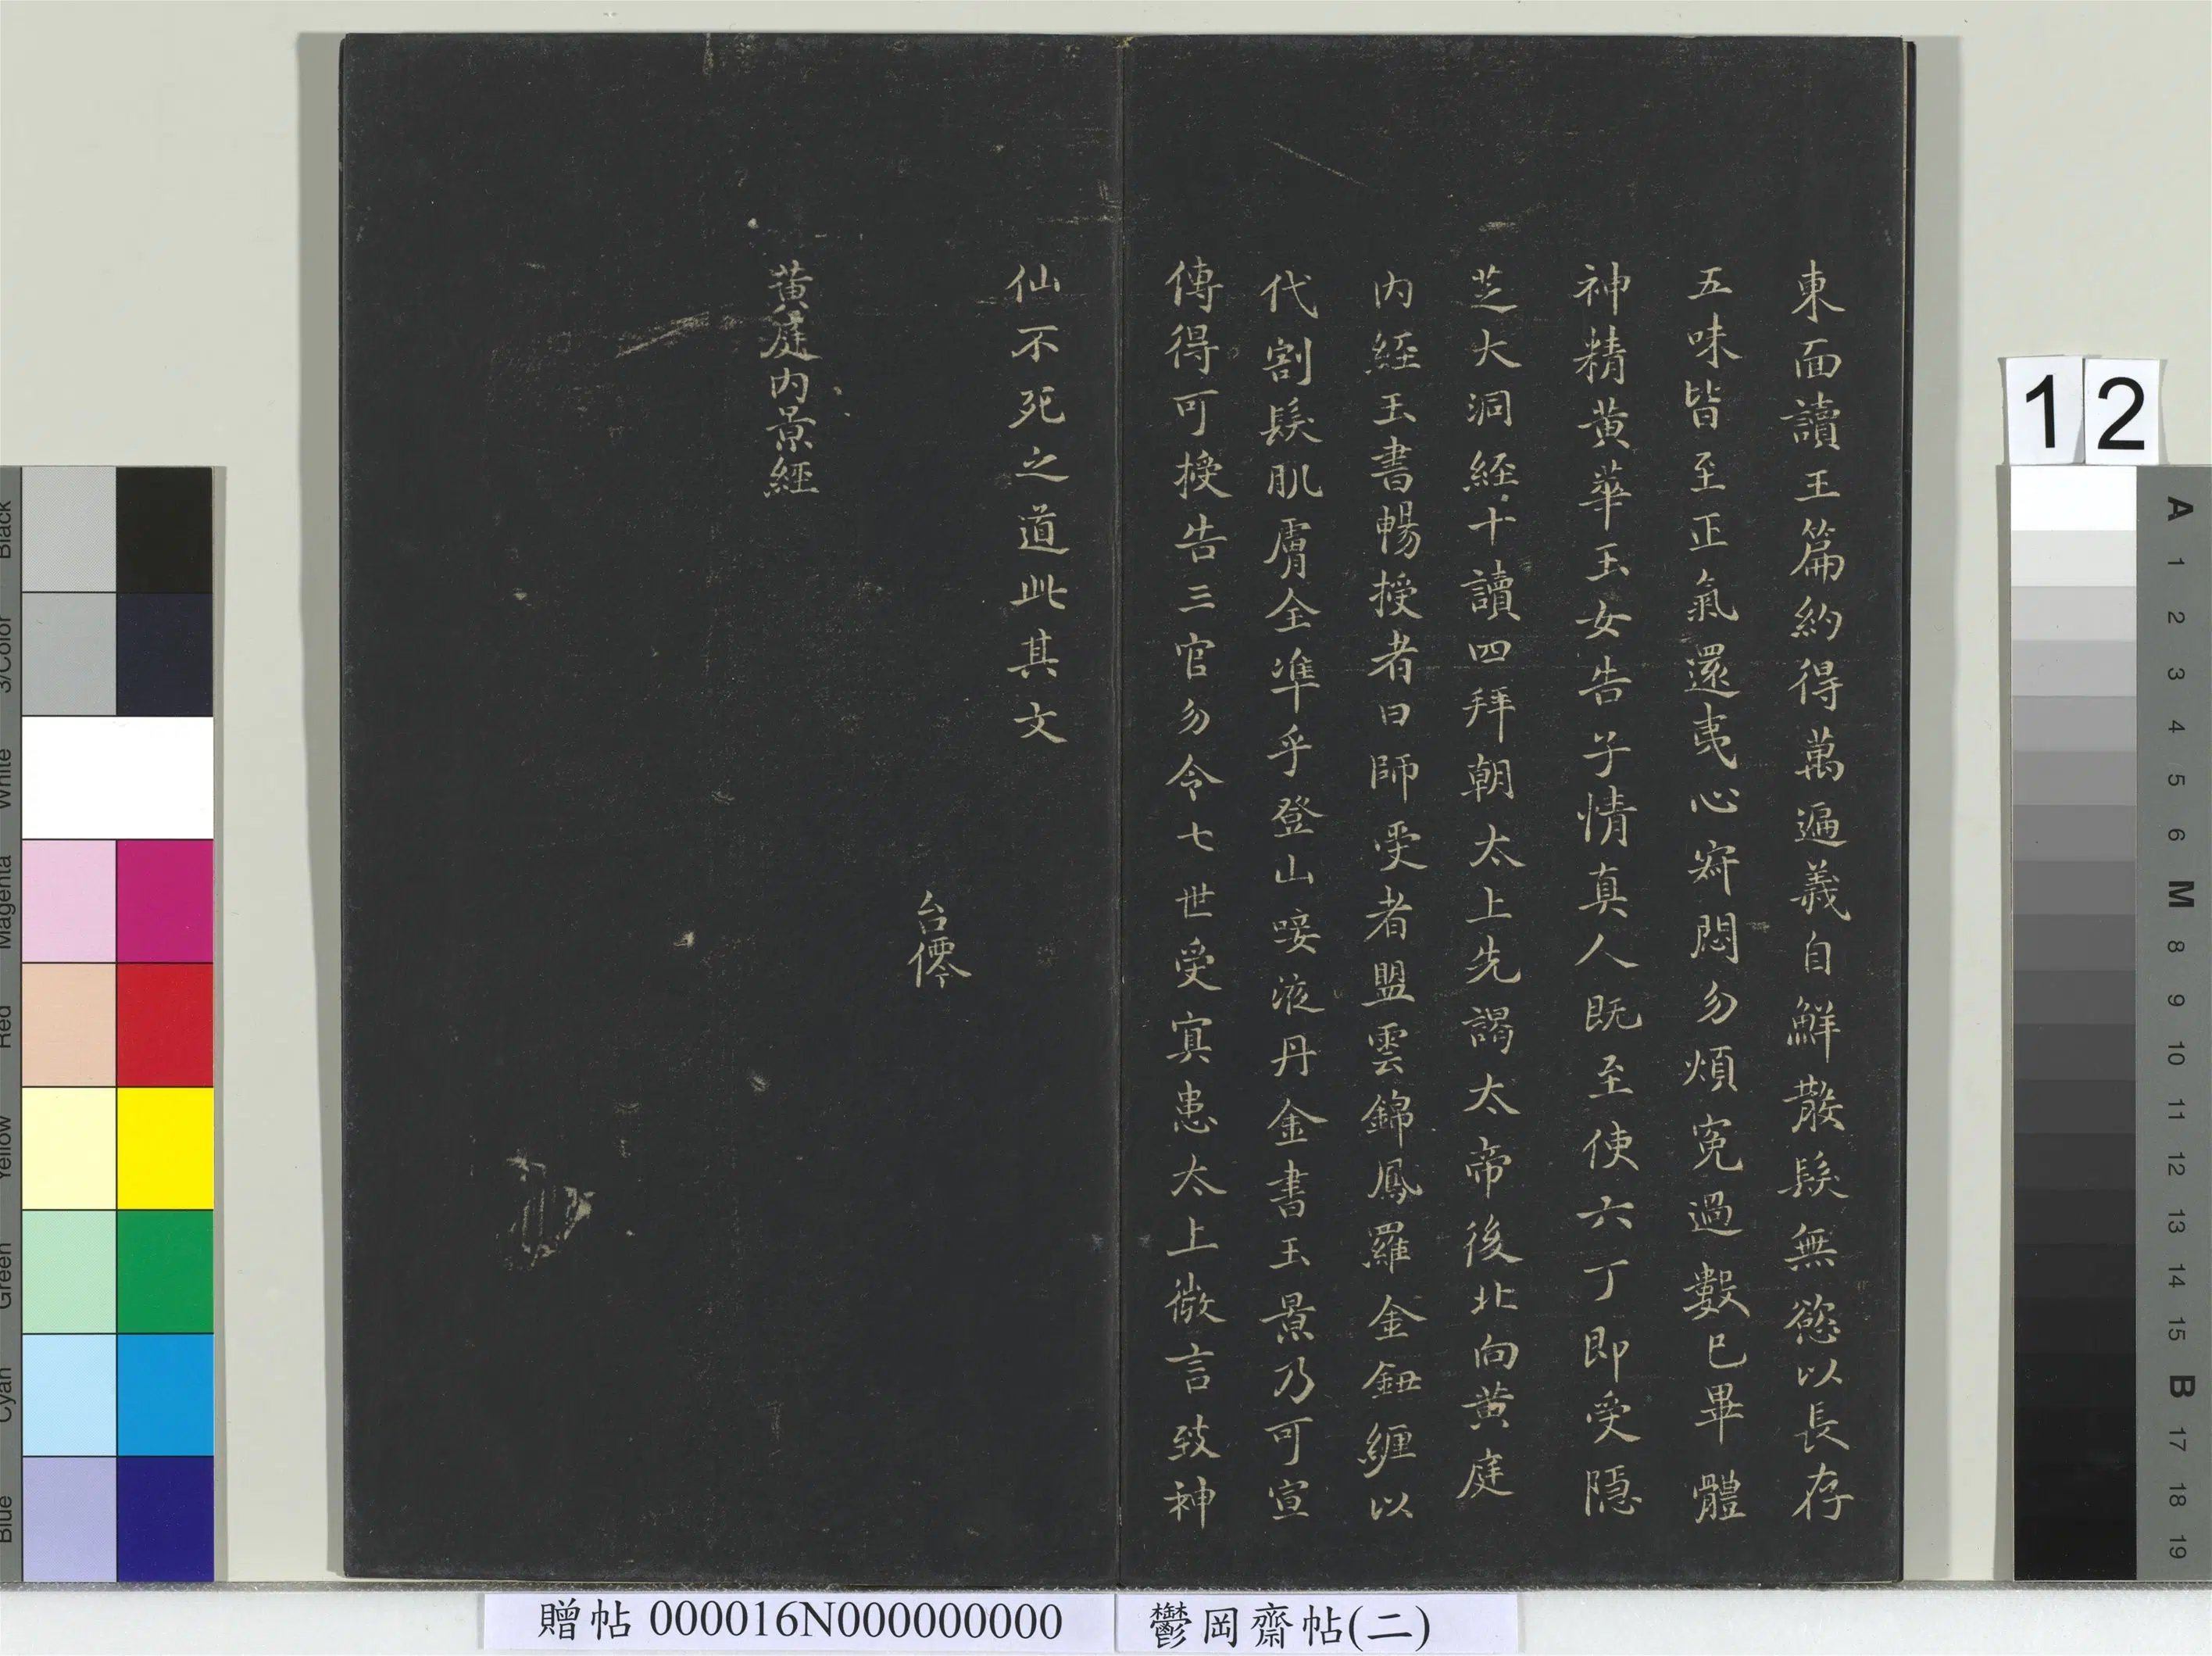 東面讀王篇約得萬遍義自鮮散髮無慾以長存
五味皆至正氣還夷心寂悶勿煩冤過數已畢體
神精黃華玉女告子情真人既至使六丁即受隱
芝大洞經十讀四拜朝太上先謁太帝後北向黃庭
內經玉書暢授者曰師受者盟雲錦鳳羅金鈕纏以
代割髮肌膚全準乎登山唼液丹金書玉景乃可宣
傳得可授告三官勿令七世受冥患太上微言致神
仙不死之道此其文
台僊
黃庭內景經
12
贈帖 000016N000000000
鬱岡齋帖(二)
Black
3/Color
White
Magenta
Red
Yellow
Green
Cyan
Blue
A
1
2
3
4
5
6
M
8
9
10
11
12
13
14
15
B
17
18
19